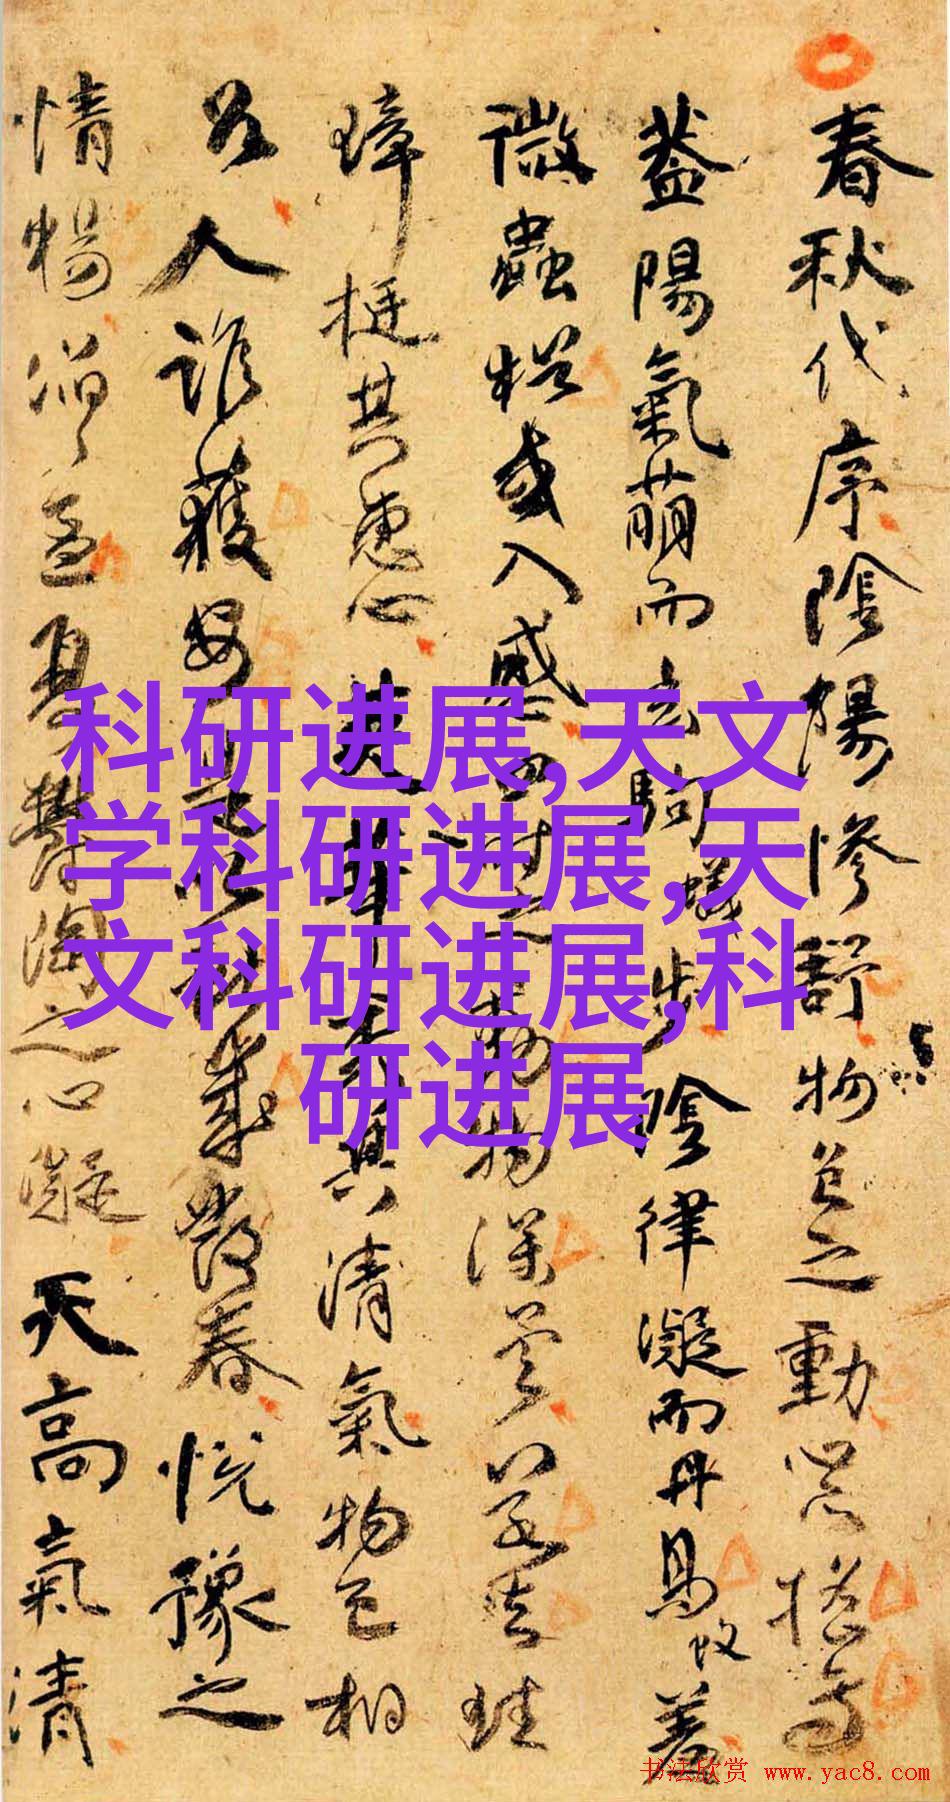 春秋代序陰陽慘舒物色之動心亦搖焉
蓋陽氣萌而玄駒蟻步陰律凝而丹鳥蚊羞
微蟲猶或入感四時之動物深矣若夫珪
璋挺其惠心英華秀其清氣物色相
召人誰獲安是以獻歲發春悅豫之
情暢滔〻孟夏鬱陶之心凝天高氣清
科研进展,天文
学科研进展,天
文科研进展,科
研进展
书法欣赏 www.yac8.com